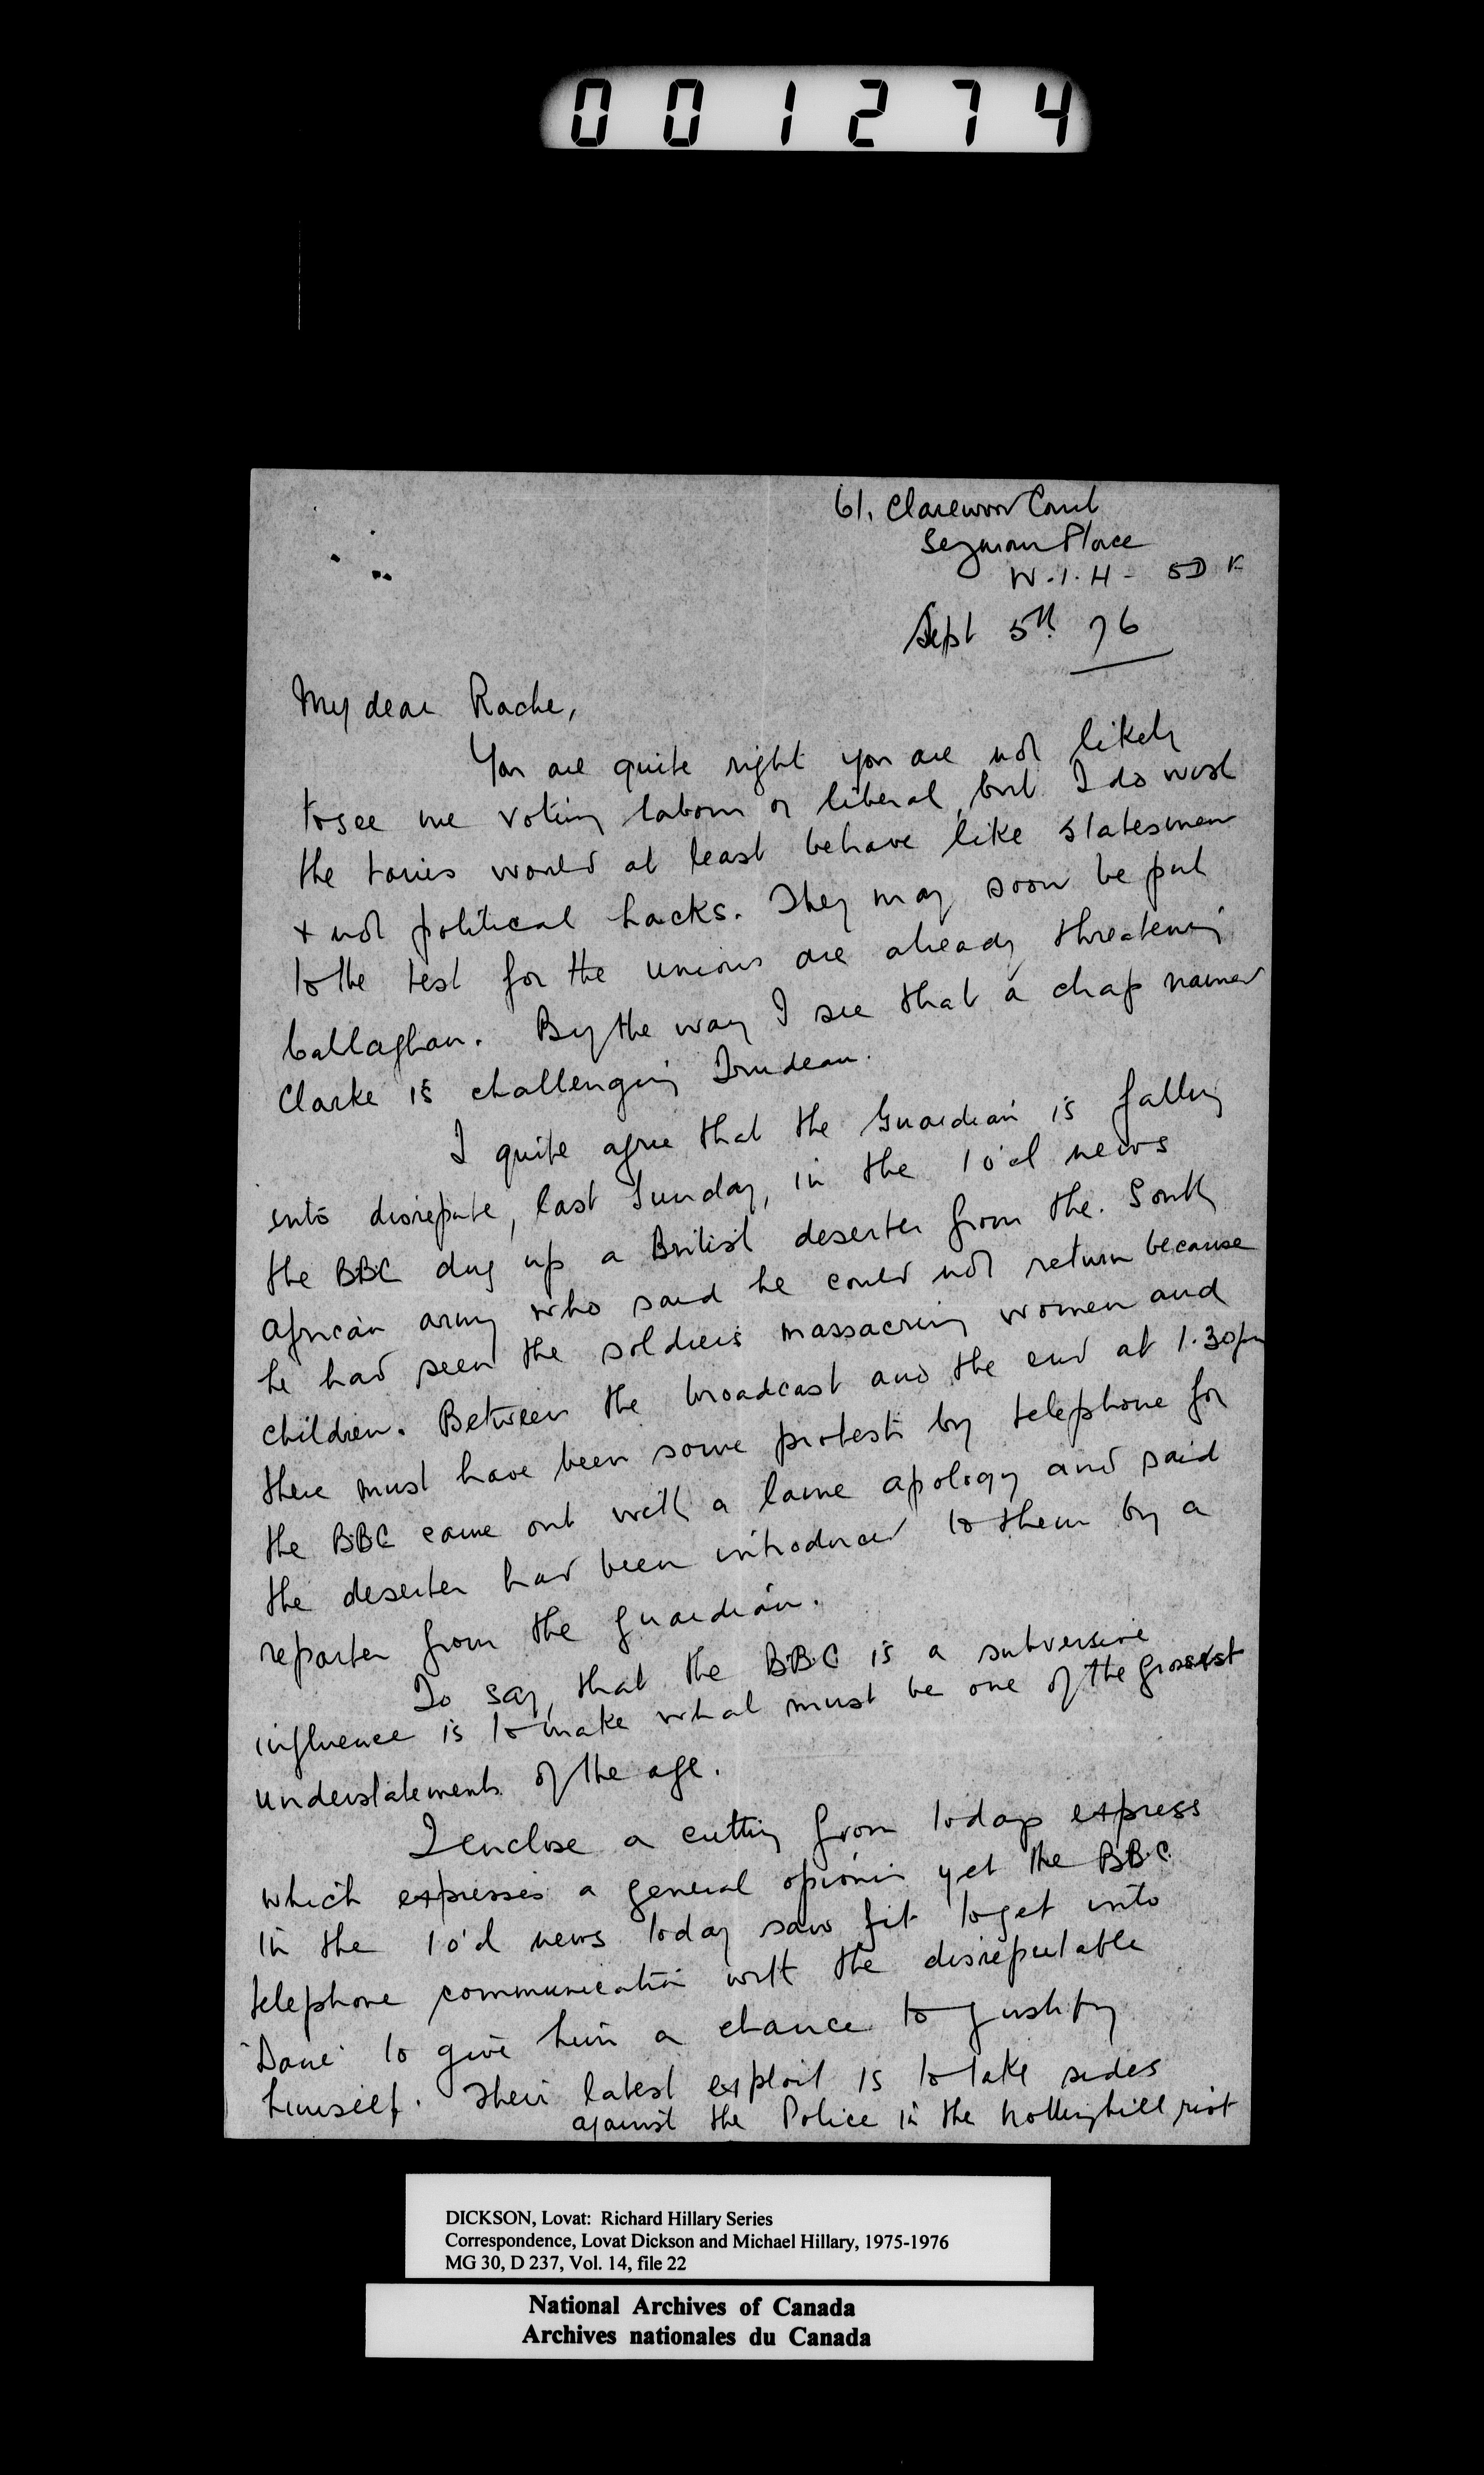 001274
61, Clarewood Court
Seymour Place
W.1.H - 5D
Sept 5th 76
My dear Rache,
You are quite right you are not likely
to see me voting labour or liberal, but I do wish
the tories would at least behave like statesmen
+ not political hacks. They may soon be put
to the test for the unions are already threatening
Callaghan. By the way I see that a chap named
Clarke is challenging Trudeau.
I quite agree that the Guardian is falling
into disrepute, last Sunday, in the 1o'cl news
the BBC dug up a British deserter from the South
African army who said he could not return because
he had seen the soldiers massacring women and
children. Between the broadcast and the end at 1.30pm
there must have been some protests by telephone for
the BBC came out with a lame apology and said
the deserter had been introduced to them by a
reporter from the guardian.
To say, that the B.B.C is a subversive
influence is to make what must be one of the grossest
understatements of the age.
I enclose a cutting from todays express
which expresses a general opinion yet the B.B.C.
in the 1o'cl news today saw fit to get into
telephone communication with the disreputable
'Dane' to give him a chance to justify
himself. Their latest exploit is to take sides
against the Police in the Nottinghill riot
DICKSON, Lovat: Richard Hillary Series
Correspondence, Lovat Dickson and Michael Hillary, 1975-1976
MG 30, D 237, Vol. 14, file 22
National Archives of Canada
Archives nationales du Canada